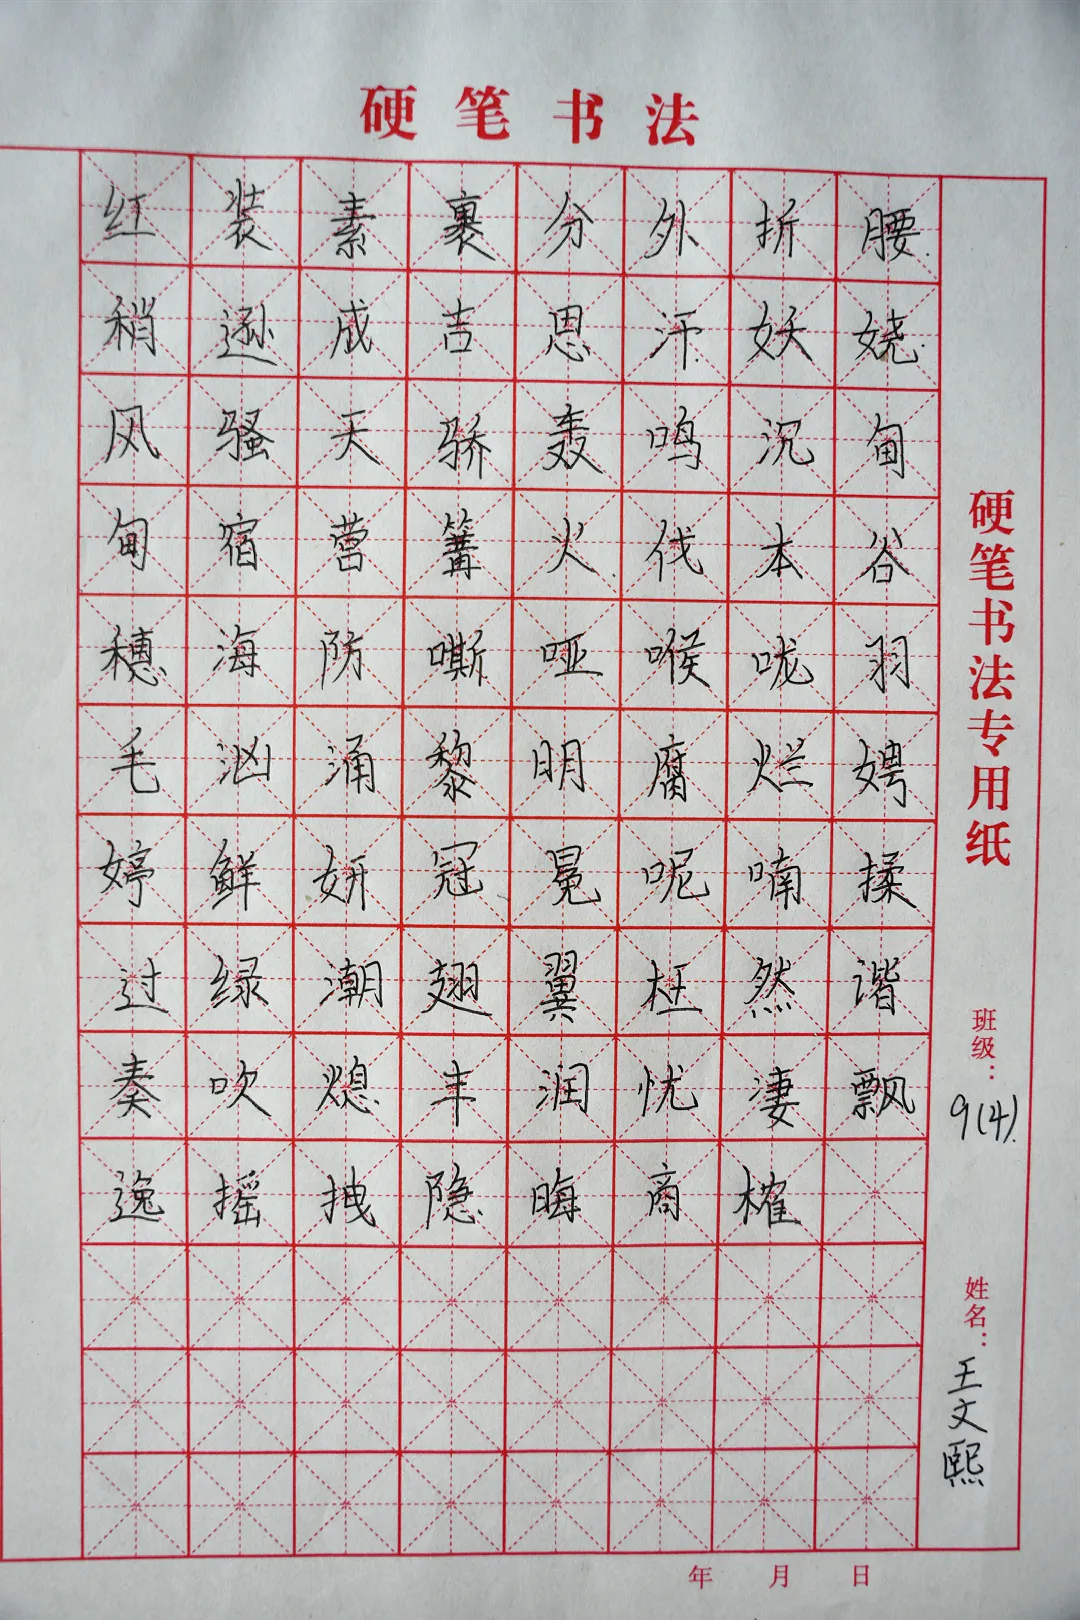 硬笔书法
红装素裹分外折腰
稍逊成吉思汗妖娆
风骚天骄轰鸣沉甸
甸宿营篝火伐本谷
穗海防嘶哑喉咙羽
毛汹涌黎明腐烂娉
婷鲜妍冠冕呢喃揉
过绿潮翅翼枉然谐
奏吹熄丰润忧凄飘
逸摇拽隐晦商榷
硬笔书法专用纸
班级：
9(4).
姓名：
王文熙
年 月 日